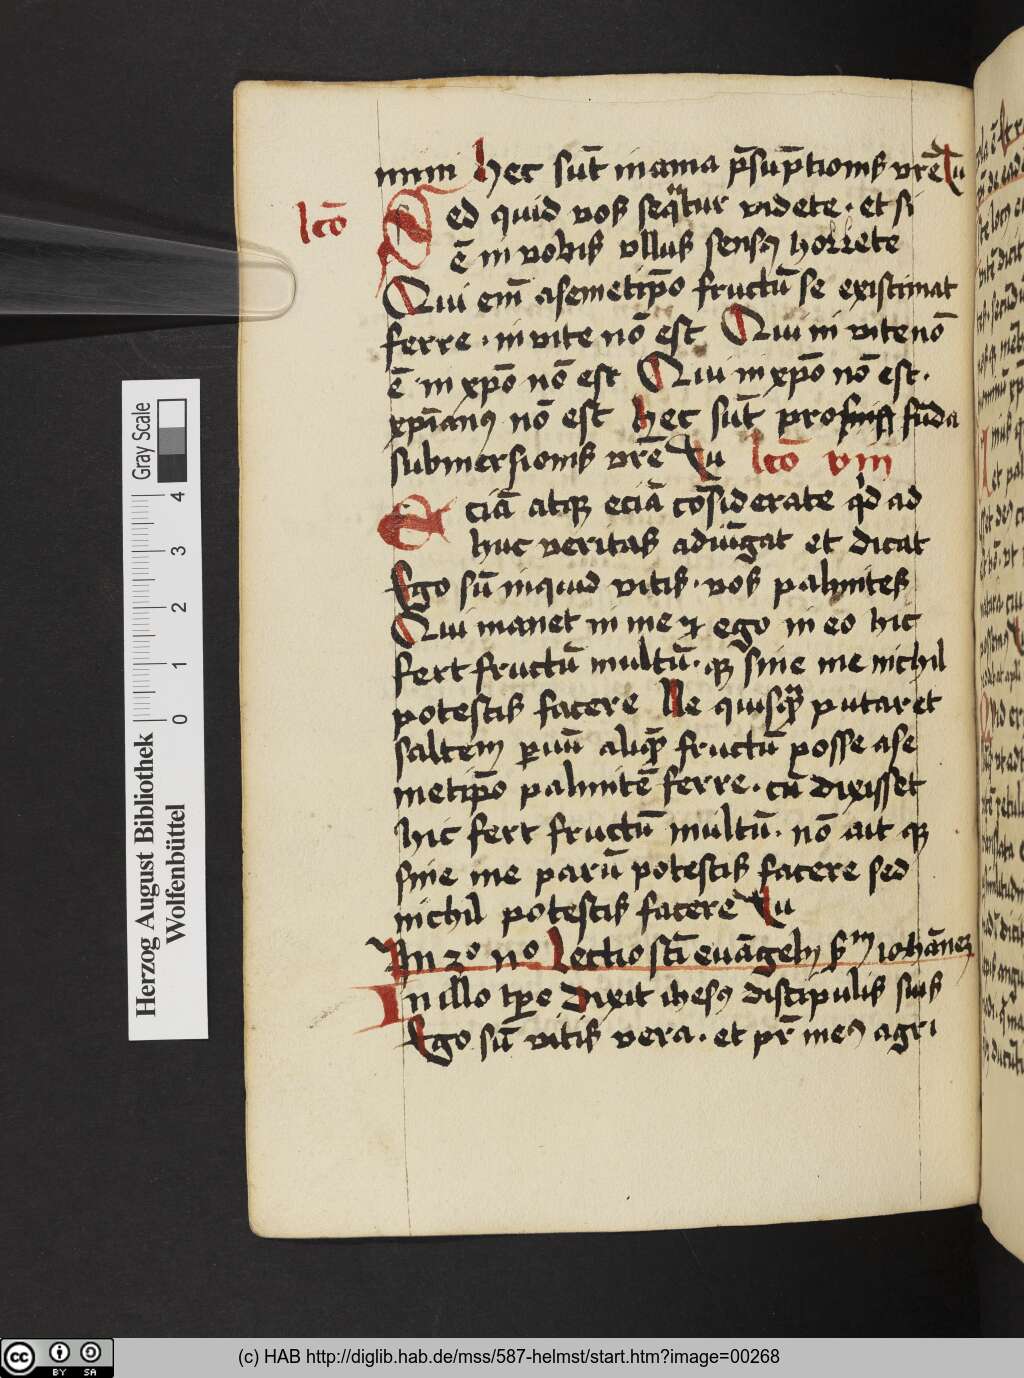 mini hec sūt inania p̄sūptionis vrē Tu
lcō
Sed quid vos seqͣtur videte · et si
ē in vobis ullus sensꝯ horrete
Qui em̄ asemetip̄o fructū se existimat
ferre · in vite nō est Qui in vite nō
ē in xp̄o nō est Qui in xp̄o nō est ·
xp̄ianꝯ nō est hec sūt fūda
submersionis vrē Tu lcō viii
Eciā atqꝫ eciā cōsiderate qd ad
huc veritas adiūgat et dicat
Ego sū inquid vitis · vos palmites
Qui manet in me ⁊ ego in eo hic
fert fructū multū · qꝫ sine me nichil
potestis facere Ne quisqͣ putaret
saltem ꝑuū aliqͣ fructū posse ase
metip̄o palmitē ferre · cū dixisset
hic fert fructū multū · nō ait qꝫ
sine me parū potestis facere sed
nichil potestis facere Tu
In 2º nº Lectio scī euāgelij sm̄ iohānem
In illo tp̄e dixit ihesꝯ discipulis suis
Ego sū vitis vera · et pr̄ meꝯ agri
Herzog August Bibliothek
Wolfenbüttel
0 1 2 3 4
Gray Scale
cc BY SA
(c) HAB http://diglib.hab.de/mss/587-helmst/start.htm?image=00268